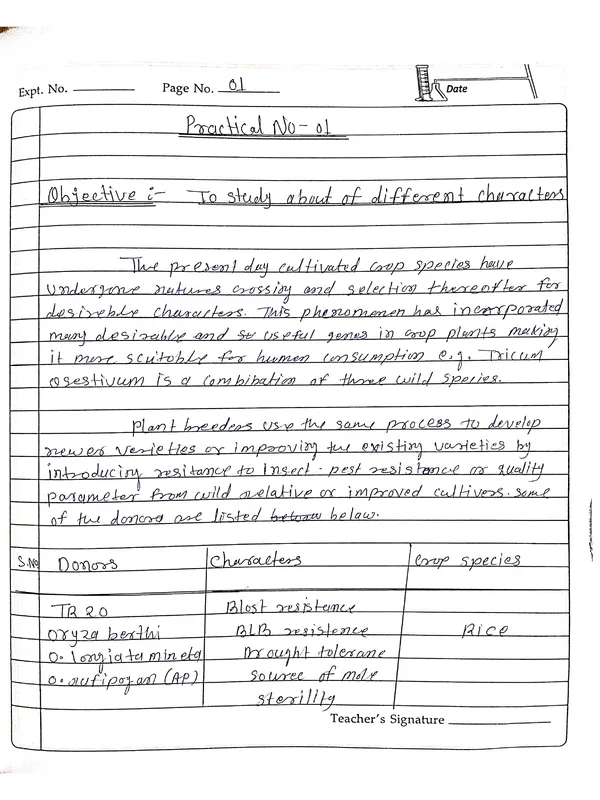 Expt. No. Page No. 01
Date
Practical No-01
Objective :- To study about of different characters
The present day cultivated crop species have
undergone natures crossing and selection thereafter for
desireble characters. This phenomenon has incorporated
many desirable and so useful genes in crop plants making
it more scuitoble for human consumption e.g. Tricum
asestivum is a combibation of three wild species.
Plant breeders use the same process to develop
newer verieties or improving the existing varieties by
introducing resitance to insect-pest resistance or quality
parameter from wild relative or improved cultivers. some
of the donora are listed below.
S.No Donors Characters Crop species
TR 20 Blost resistance
oryza berthi BLB resistence Rice
o. longiata mineta Drought tolerane
o. rufipogan (AP) source of mole
sterility
Teacher's Signature